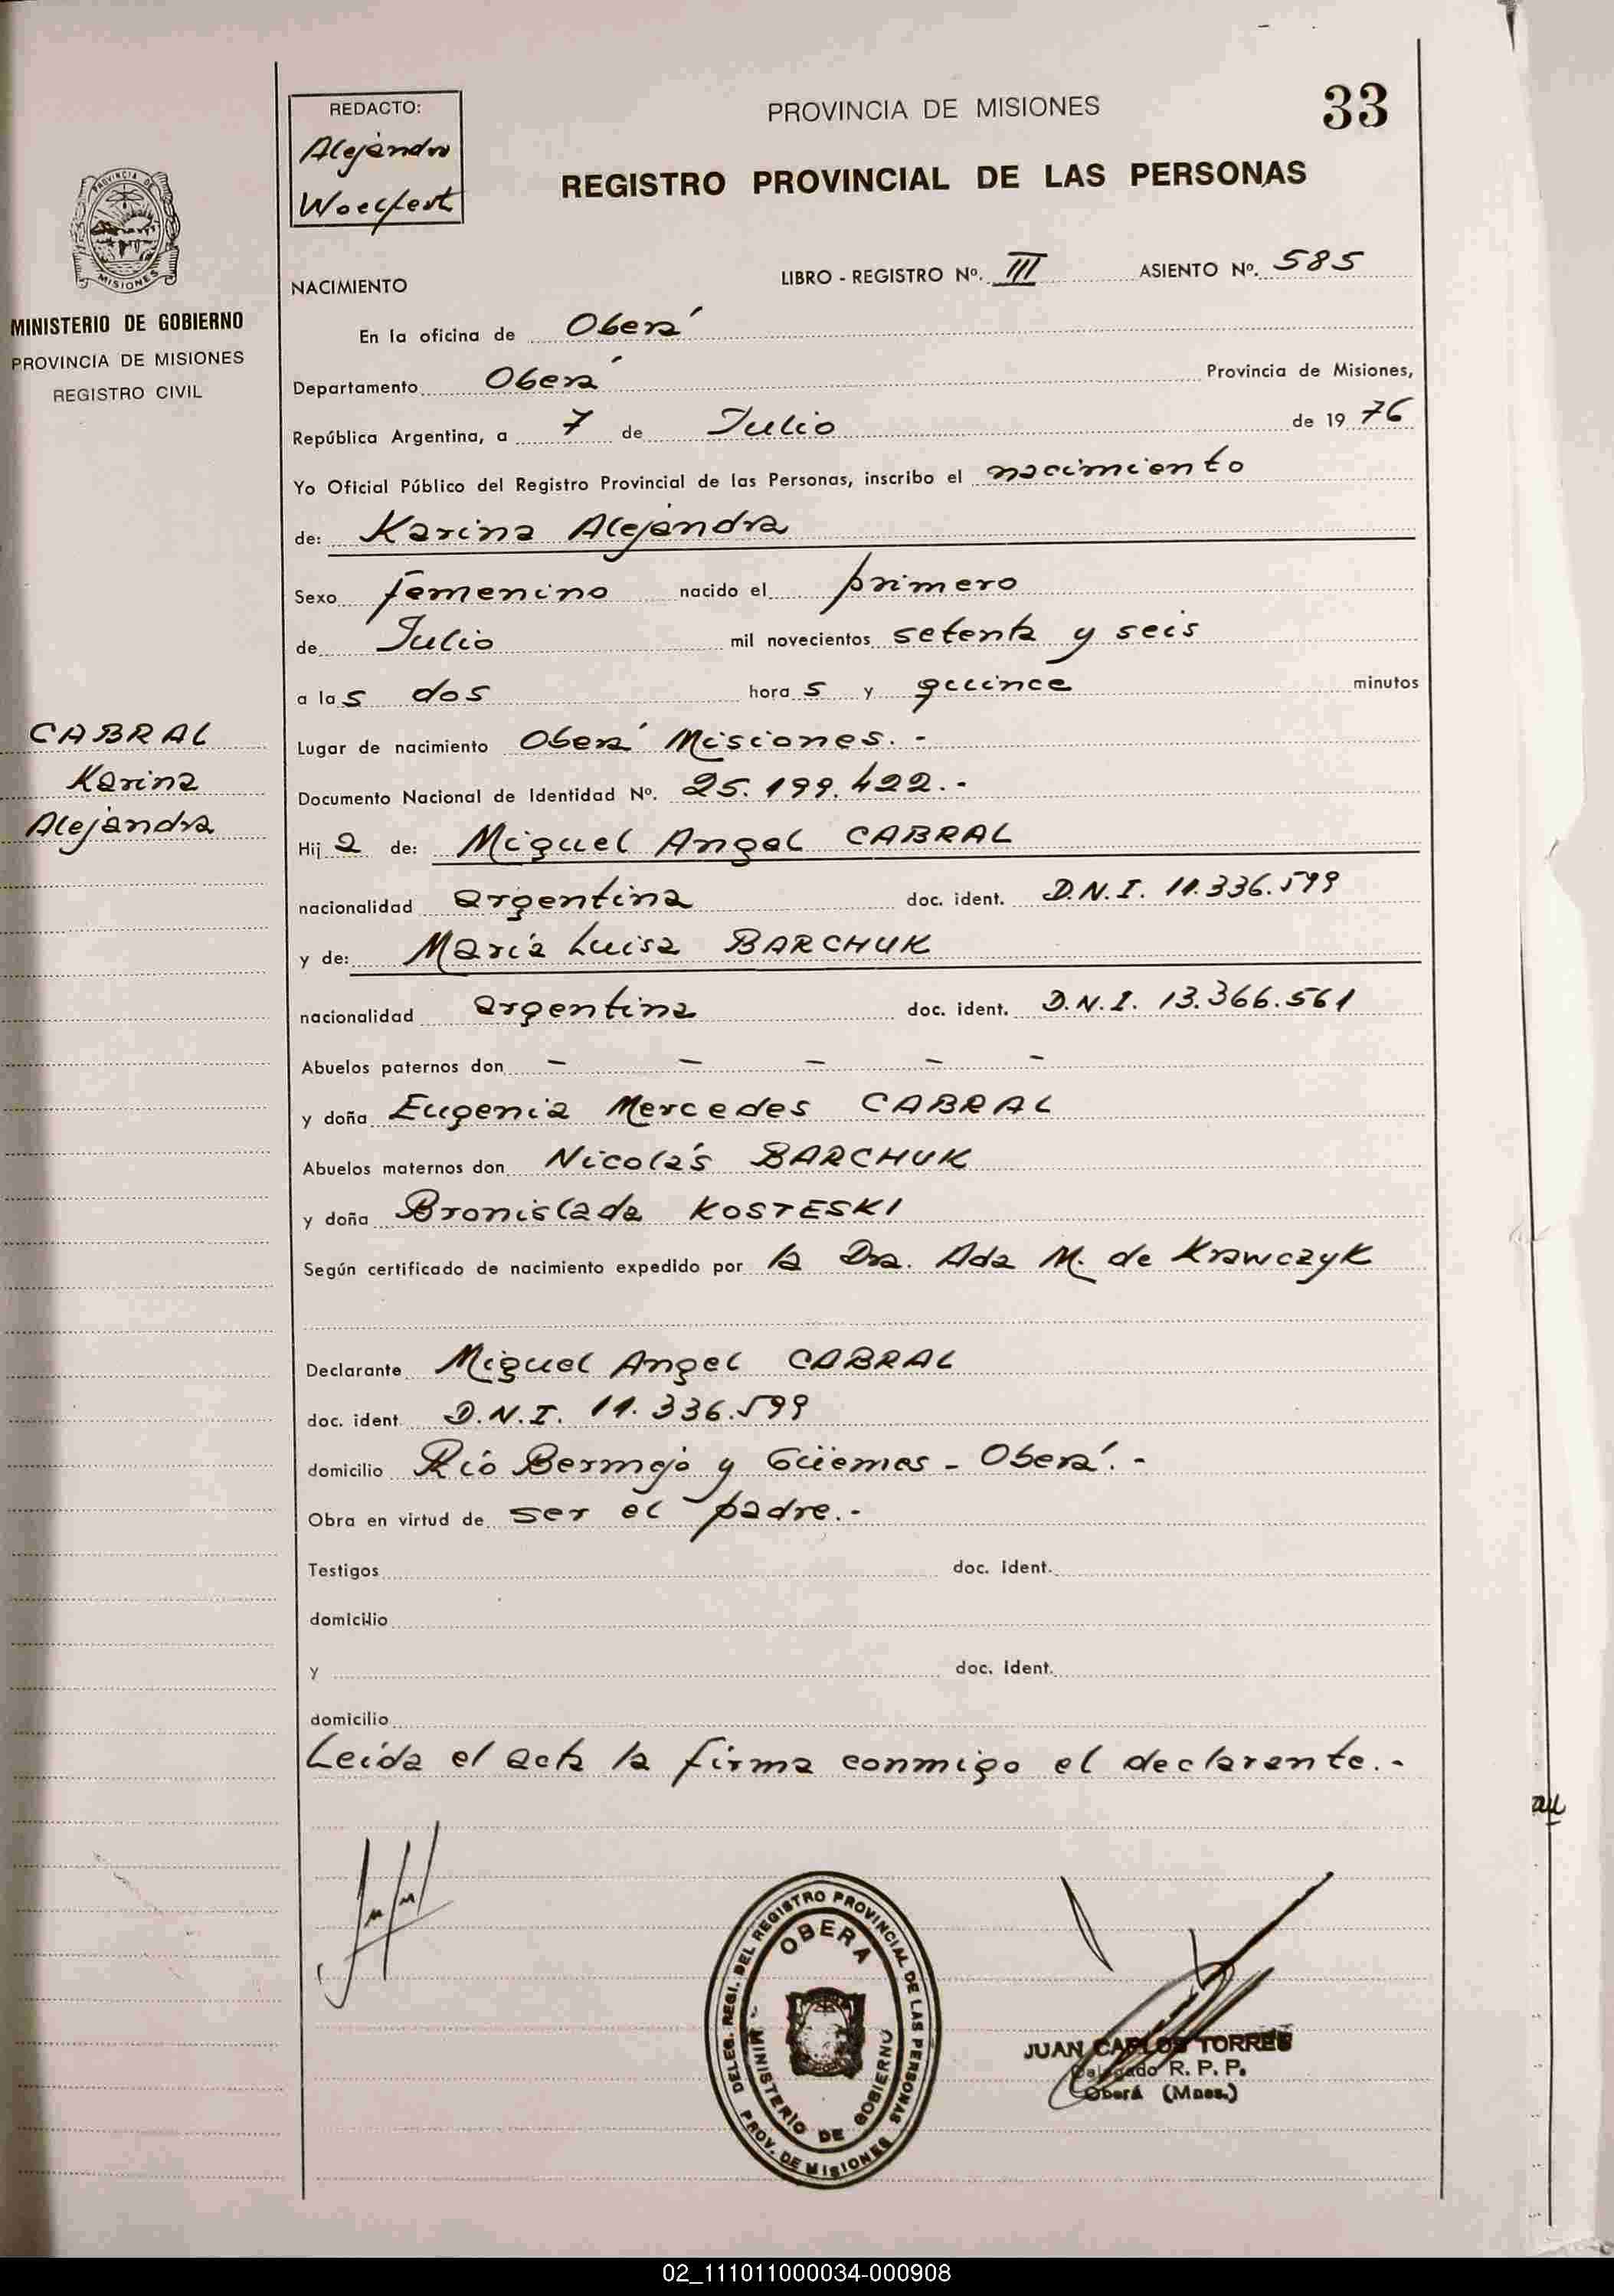 33
PROVINCIA DE MISIONES
REGISTRO PROVINCIAL DE LAS PERSONAS
REDACTO:
Alejandro
PROVINCIA DE
MISIONES
MINISTERIO DE GOBIERNO
PROVINCIA DE MISIONES
REGISTRO CIVIL
NACIMIENTO
LIBRO - REGISTRO Nº. III ASIENTO Nº. 585
En la oficina de Oberá
Departamento Oberá Provincia de Misiones,
República Argentina, a 7 de Julio de 1976
Yo Oficial Público del Registro Provincial de las Personas, inscribo el nacimiento
de: Karina Alejandra
Sexo femenino nacido el primero
de Julio mil novecientos setenta y seis
a las dos horas y quince minutos
CABRAL
Karina
Alejandra
Lugar de nacimiento Oberá Misiones.-
Documento Nacional de Identidad Nº. 25.199.422.-
Hija de: Miguel Angel CABRAL
nacionalidad argentina doc. ident. D.N.I. 11.336.599
y de: María Luisa BARCHUK
nacionalidad argentina doc. ident. D.N.I. 13.366.561
Abuelos paternos don - - - - -
y doña Eugenia Mercedes CABRAL
Abuelos maternos don Nicolás BARCHUK
y doña Bronislada KOSTESKI
Según certificado de nacimiento expedido por la Dra. Ada M. de Krawczyk
Declarante Miguel Angel CABRAL
doc. ident. D.N.I. 11.336.599
domicilio Río Bermejo y Güemes - Oberá.-
Obra en virtud de ser el padre.-
Testigos doc. ident.
domicilio
y doc. ident.
domicilio
Leída el acta la firma conmigo el declarante.-
DELEG. REGI. DEL REGISTRO PROVINCIAL DE LAS PERSONAS
PROV. DE MISIONES
OBERA
MINISTERIO DE GOBIERNO
JUAN CARLOS TORRES
Delegado R. P. P.
Oberá (Mnes.)
02_111011000034-000908